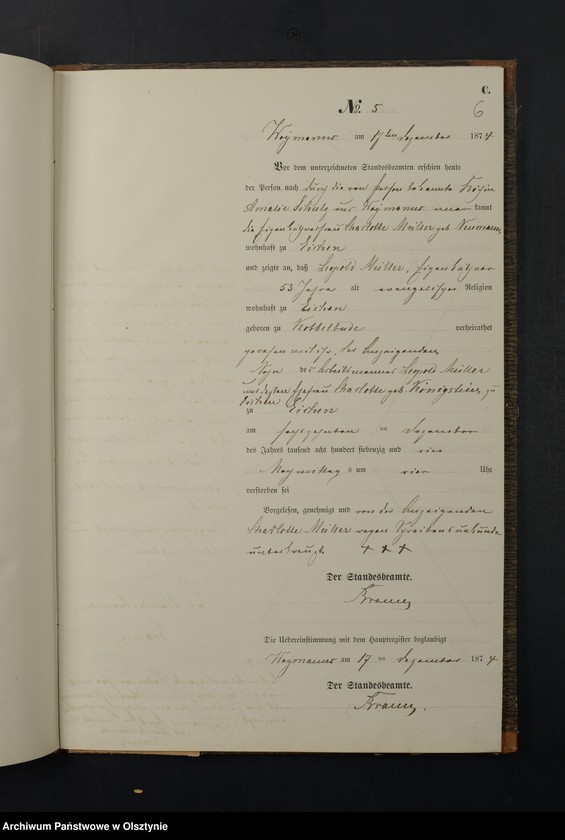 C.
No. 5
6
am 17ten Dezember 1874
Vor dem unterzeichneten Standesbeamten erschien heute
der Person nach durch die von Person bekannte Köchin
Amalie Schulz aus anerkannt
die Eigenkäthnerfrau Charlotte Müller geb. Neumann,
wohnhaft zu Eichen
und zeigte an, daß Leopold Müller, Eigenkäthner
53 Jahre alt evangelischer Religion
wohnhaft zu Eichen
geboren zu Kobbelbude verheirathet
gewesen mit ihr, der Anzeigenden,
Sohn des Arbeitsmannes Leopold Müller
und dessen Ehefrau Charlotte geb. Königstein, zu
Eichen
zu Eichen
am sechszehnten ten Dezember
des Jahres tausend acht hundert siebenzig und vier
Nachmittags um vier Uhr
verstorben sei
Vorgelesen, genehmigt und von der Anzeigenden
Charlotte Müller wegen Schreibensunkunde
unterkreuzt + + +
Der Standesbeamte.
Die Uebereinstimmung mit dem Hauptregister beglaubigt
am 17 ten Dezember 1874
Der Standesbeamte.
Archiwum Państwowe w Olsztynie